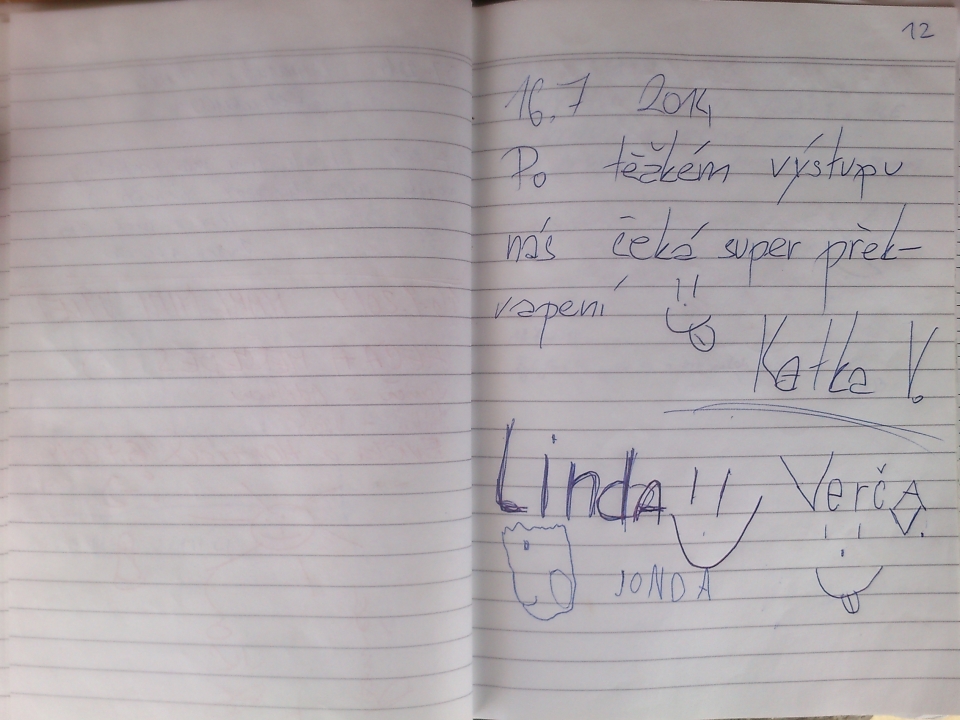 12
16.7 2014
Po těžkém výstupu
nás čeká super přek-
vapení
Katka V.
Linda!! Verča V.
JONDA